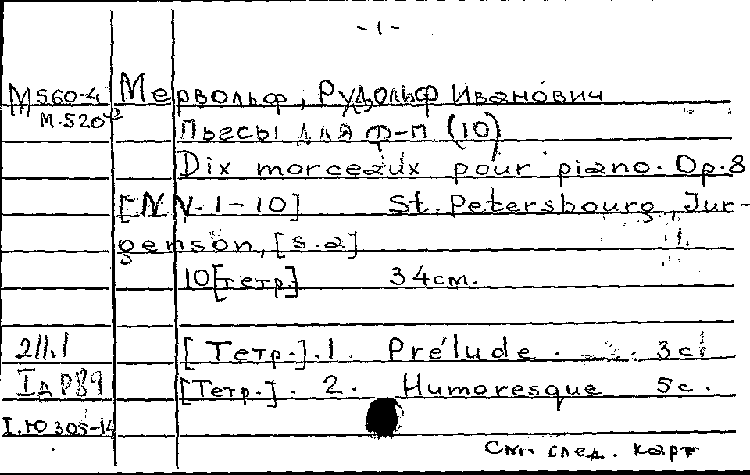 -1-
М560-4 Мервольф, Рудольф Иванович
М-520
Пьесы для ф-п (10)
Dix morceaux pour piano. Op.8
[NN.1-10] St. Petersbourg, Jur-
genson, [s.a]
10[тетр.] 34см.
211.1 [Тетр.].1. Prélude. 3с.
Iд Р89 [Тетр.]. 2. Humoresque 5с.
I.Ю305-14
См. след. карт